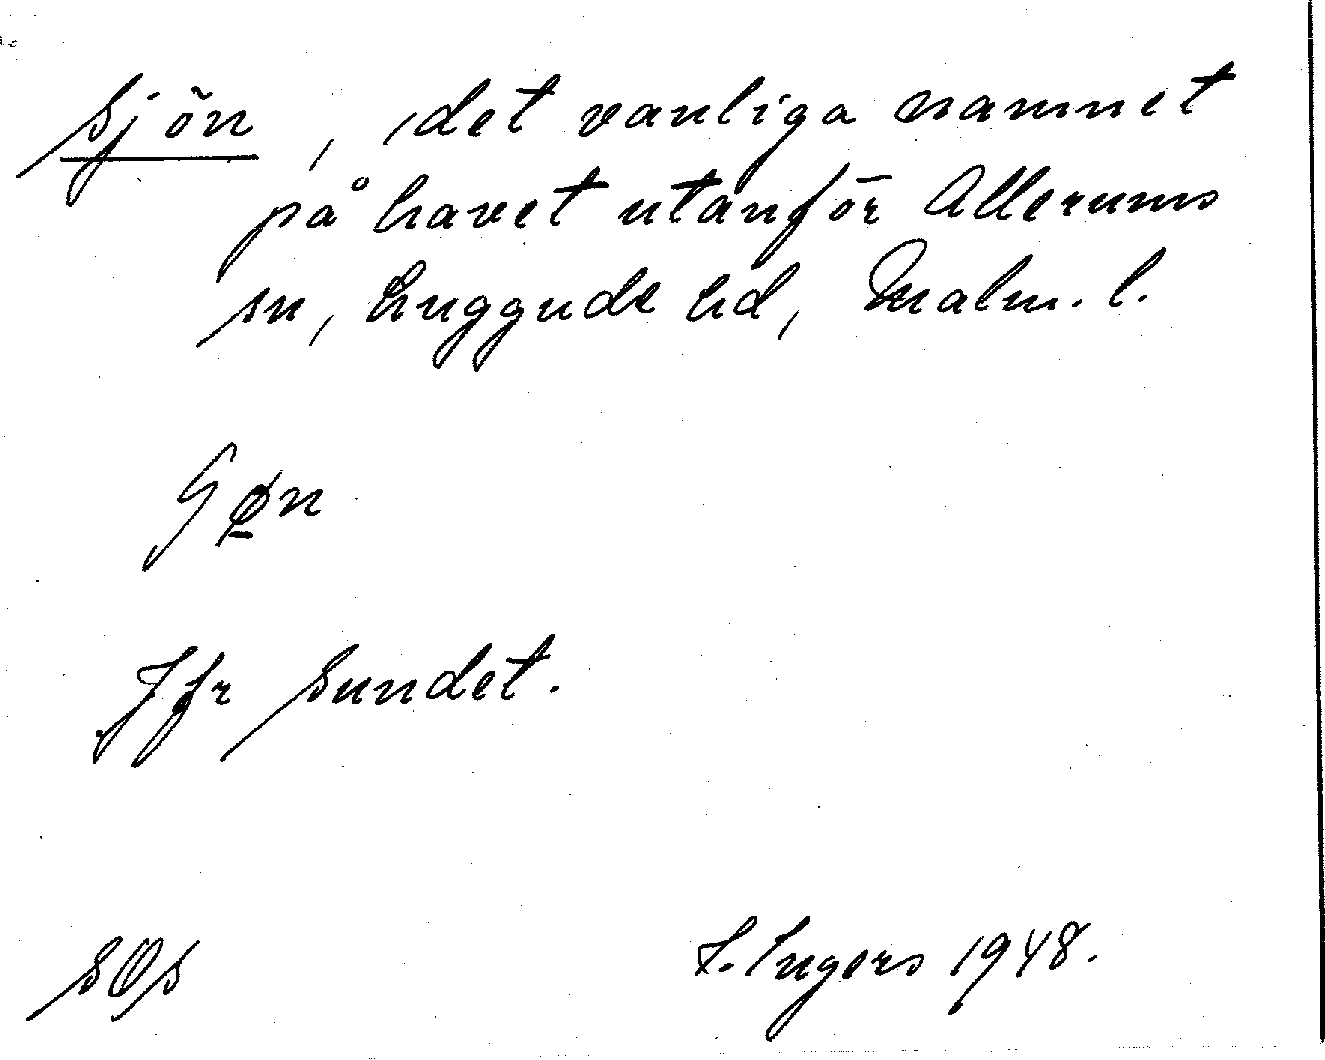 Sjön, det vanliga namnet
på havet utanför Allerums
sn, Luggude hd, Malm. l.
Jfr Sundet.
I. Ingers 1948.